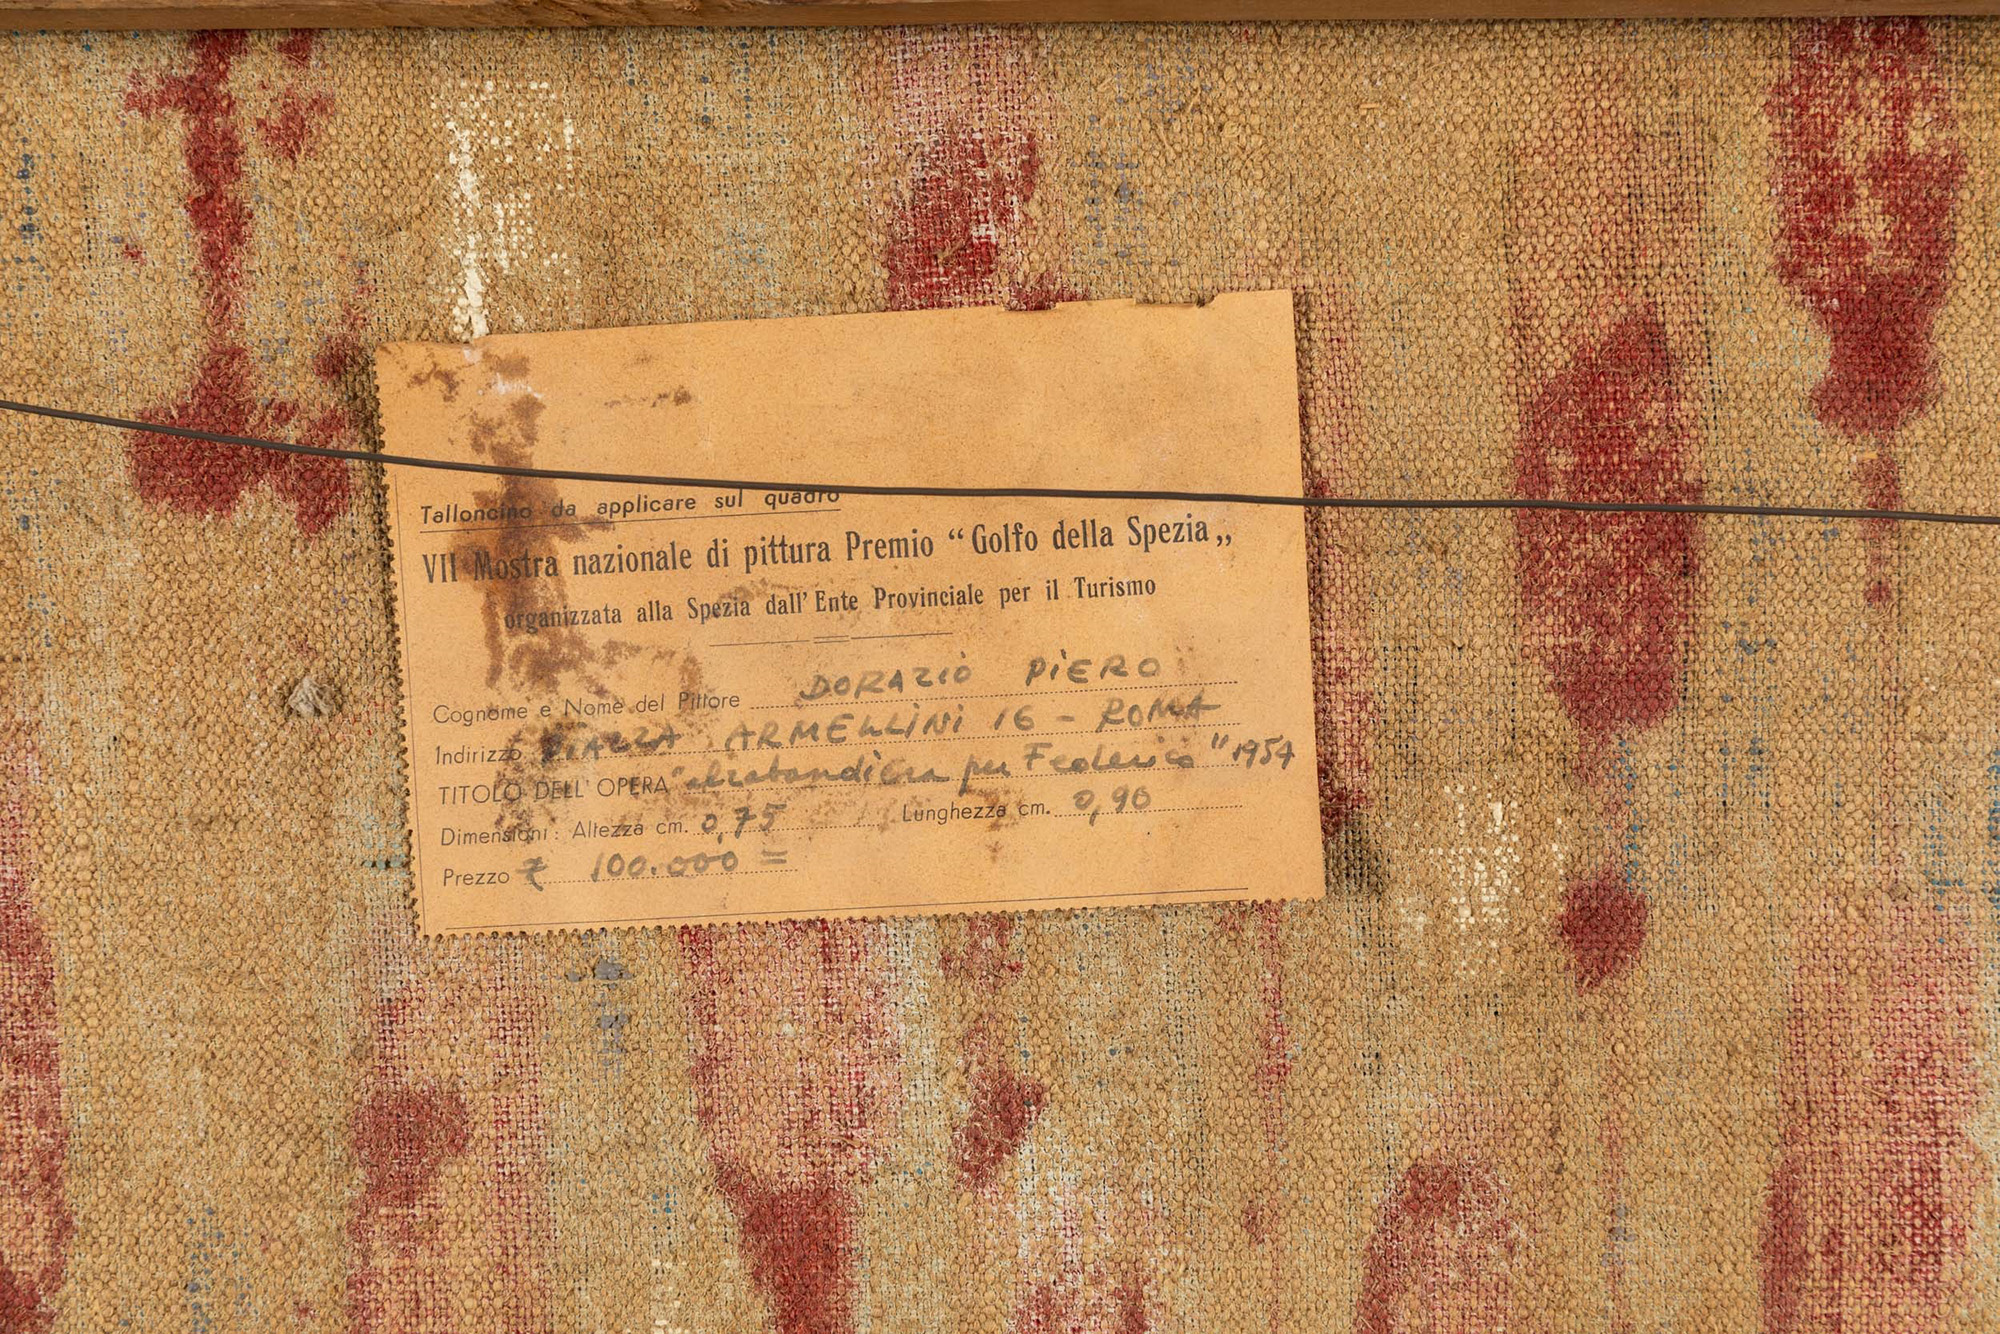 Talloncino da applicare sul quadro
VII Mostra nazionale di pittura Premio “Golfo della Spezia„
organizzata alla Spezia dall' Ente Provinciale per il Turismo
Cognome e Nome del Pittore DORAZIO PIERO
Indirizzo PIAZZA ARMELLINI 16 - ROMA
TITOLO DELL' OPERA "alzabandiera per Federico" 1954
Dimensioni: Altezza cm. 0,75 Lunghezza cm. 0,90
Prezzo £ 100.000 =